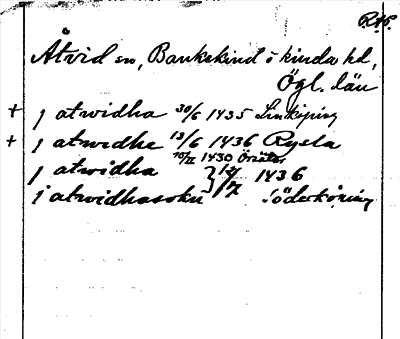 R.A.P.
Åtvid sn, Bankekind o kinda hd,
Ögl. län
+ j atwidha 30/6 1435 Linköping
+ j atwidhe 13/6 1436 Rysta
10/II 1430 Örsätter
j atwidha } 14/7 1436
j atwidhasokn Söderköping